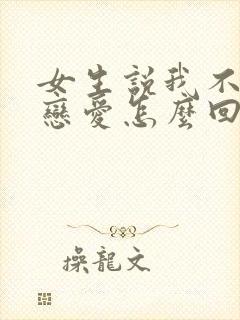 女生說我不
戀愛怎麼回
操龍文